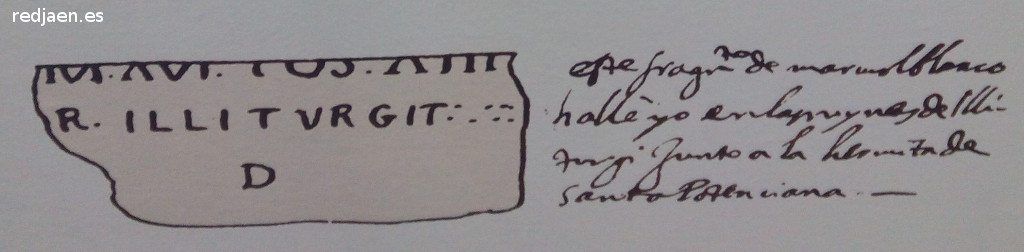 redjaen.es
R. ILLITVRGIT
D
este fragm.to de marmol blanco
hallè yo en las ruynas de Illi-
turgi Junto a la hermita de
santa Potenciana. —